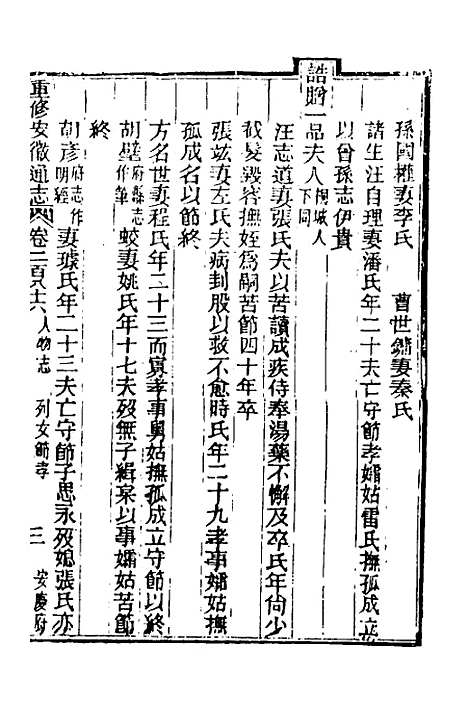 孫國權妻李氏　曹世鏽妻秦氏
諸生汪自理妻潘氏年二十夫亡守節孝孀姑雷氏撫孤成立
以曾孫志伊貴
誥贈一品夫人桐城人下同
汪志道妻張氏夫以苦讀成疾侍奉湯藥不懈及卒氏年尙少
截髮毀容撫姪爲嗣苦節四十年卒
張竑妻左氏夫病刲股以救不愈時氏年二十九孝事孀姑撫
孤成名以節終
方名世妻程氏年二十三而寡孝事舅姑撫孤成立守節以終
胡壁府縣志作筆蛟妻姚氏年十七夫歿無子緝枲以事孀姑苦節
終
胡彥府志作明經妻璩氏年二十三夫亡守節子思永歿媳張氏亦
重修安徽通志 卷二百六十六 人物志 列女節孝 三 安慶府